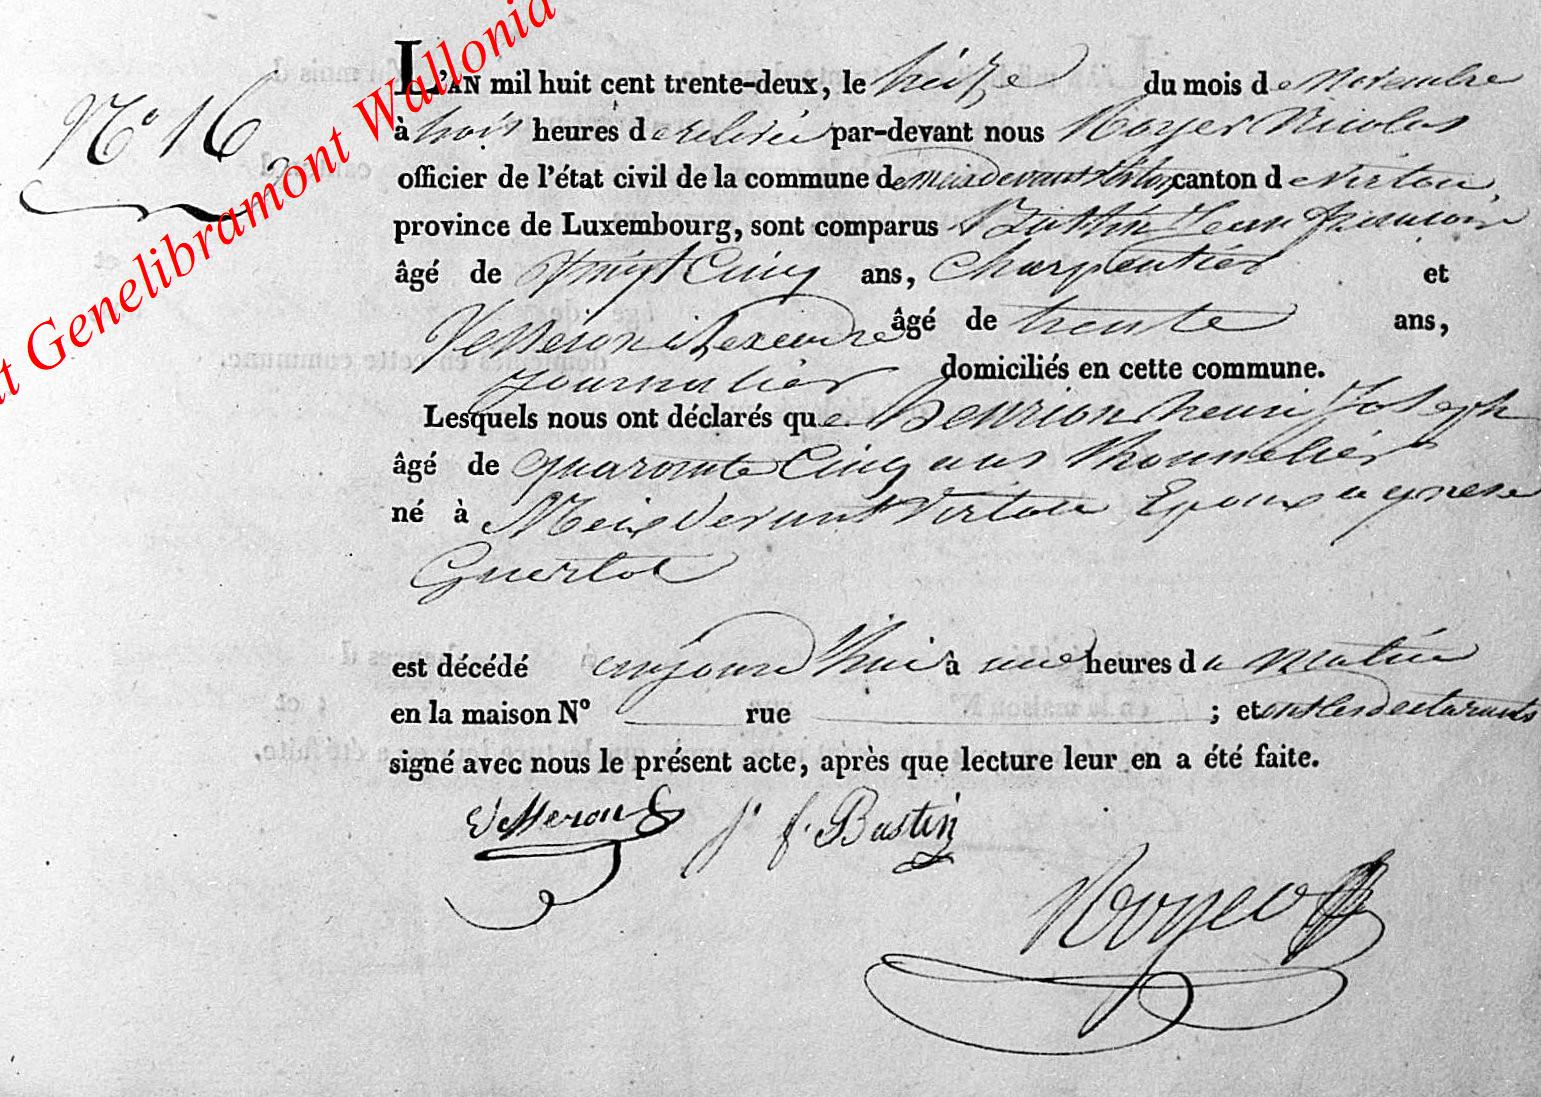 t Genelibramont Wallonia
N° 16
L'AN mil huit cent trente-deux, le treize du mois de Novembre
à trois heures de relevée par-devant nous Royer Nicolas
officier de l'état civil de la commune de meix devant Virton canton de Virton
province de Luxembourg, sont comparus Bastin Jean francois
âgé de vingt Cinq ans, Charpentier et
Vesseron alexandre âgé de trente ans,
journalier domiciliés en cette commune.
Lesquels nous ont déclarés que henrion henri Joseph
âgé de quarante Cinq ans
né à Meix devant Virton Epoux agnese
est décédé aujourd'hui à une heures du matin
en la maison N° rue ; et ont les déclarants
signé avec nous le présent acte, après que lecture leur en a été faite.
Vesseron J. f. Bastin
Royer